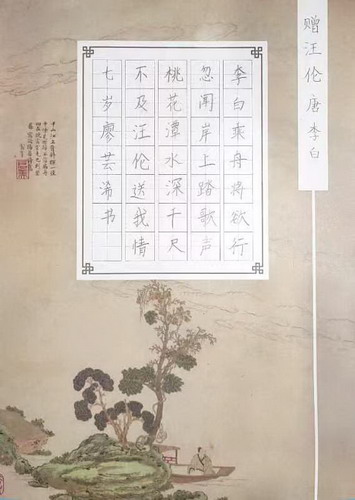 赠汪伦 唐 李白
李白乘舟将欲行
忽闻岸上踏歌声
桃花潭水深千尺
不及汪伦送我情
七岁廖芸浠书